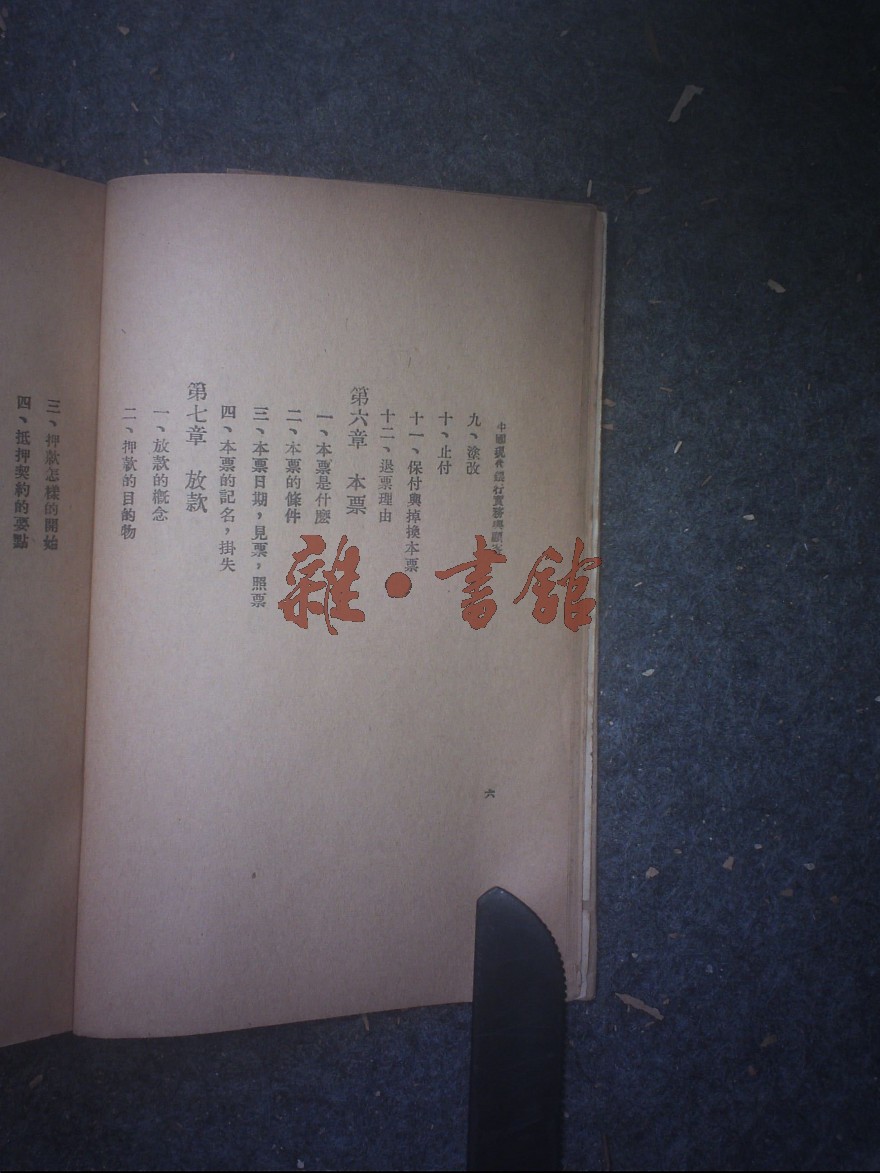 中國現代銀行實務與顧客
六
九、塗改
十、止付
十一、保付與掉換本票
十二、退票理由
第六章 本票
一、本票是什麼
二、本票的條件
三、本票日期，見票，照票
四、本票的記名，掛失
第七章 放款
一、放款的概念
二、押款的目的物
三、押款怎樣的開始
四、抵押契約的要點
雜·書館